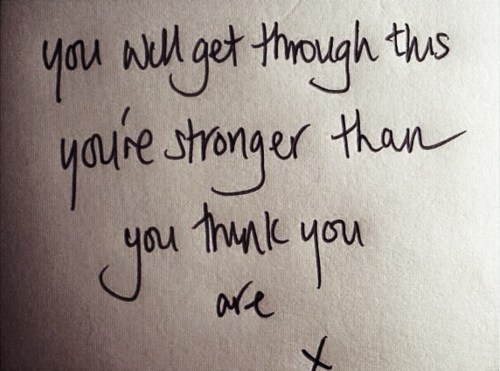 you will get through this
you're stronger than
you think you
are
x